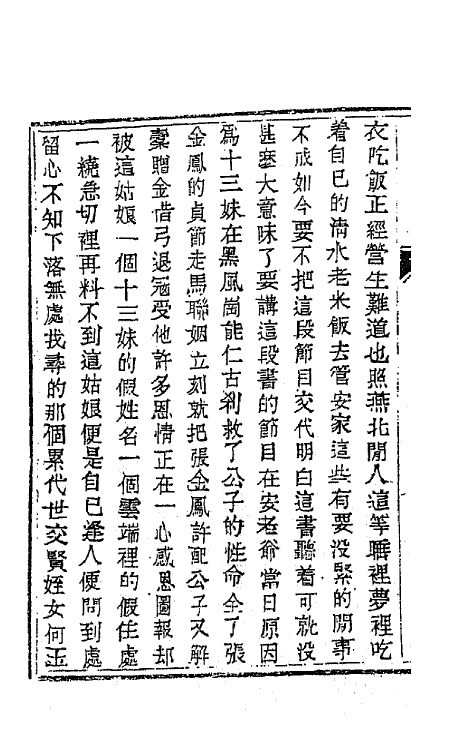 衣吃飯正經營生難道也照燕北閒人這等睡裡夢裡吃
着自已的清水老米飯去管安家這些有要没緊的閒事
不成如今要不把這段節目交代明白這書聽着可就没
甚麽大意味了要講這段書的節目在安老爺當日原因
爲十三妹在黑風崗能仁古刹救了公子的性命全了張
金鳳的貞節走馬聯姻立刻就把張金鳳許配公子又解
橐贈金借弓退冦受他許多恩情正在一心感恩圖報却
被這姑娘一個十三妹的假姓名一個雲端裡的假住處
一繞急切裡再料不到這姑娘便是自已逢人便問到處
留心不知下落無處找尋的那個累代世交賢姪女何玉